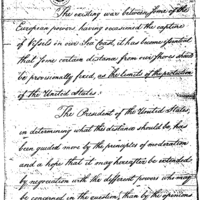 The existing war between some of the
European powers having occasioned the capture
of Vessels in our Sea Coast, it has become fit and
that some certain distance from our shores should
be provisionally fixed, as the limits of the protection
of the United States.
The President of the United States,
in determining what this distance should be, has
been guided more by the principles of moderation
and a hope that it may hereafter be extended
by negociation with the different powers who may
be concerned in the question, than by the opinions